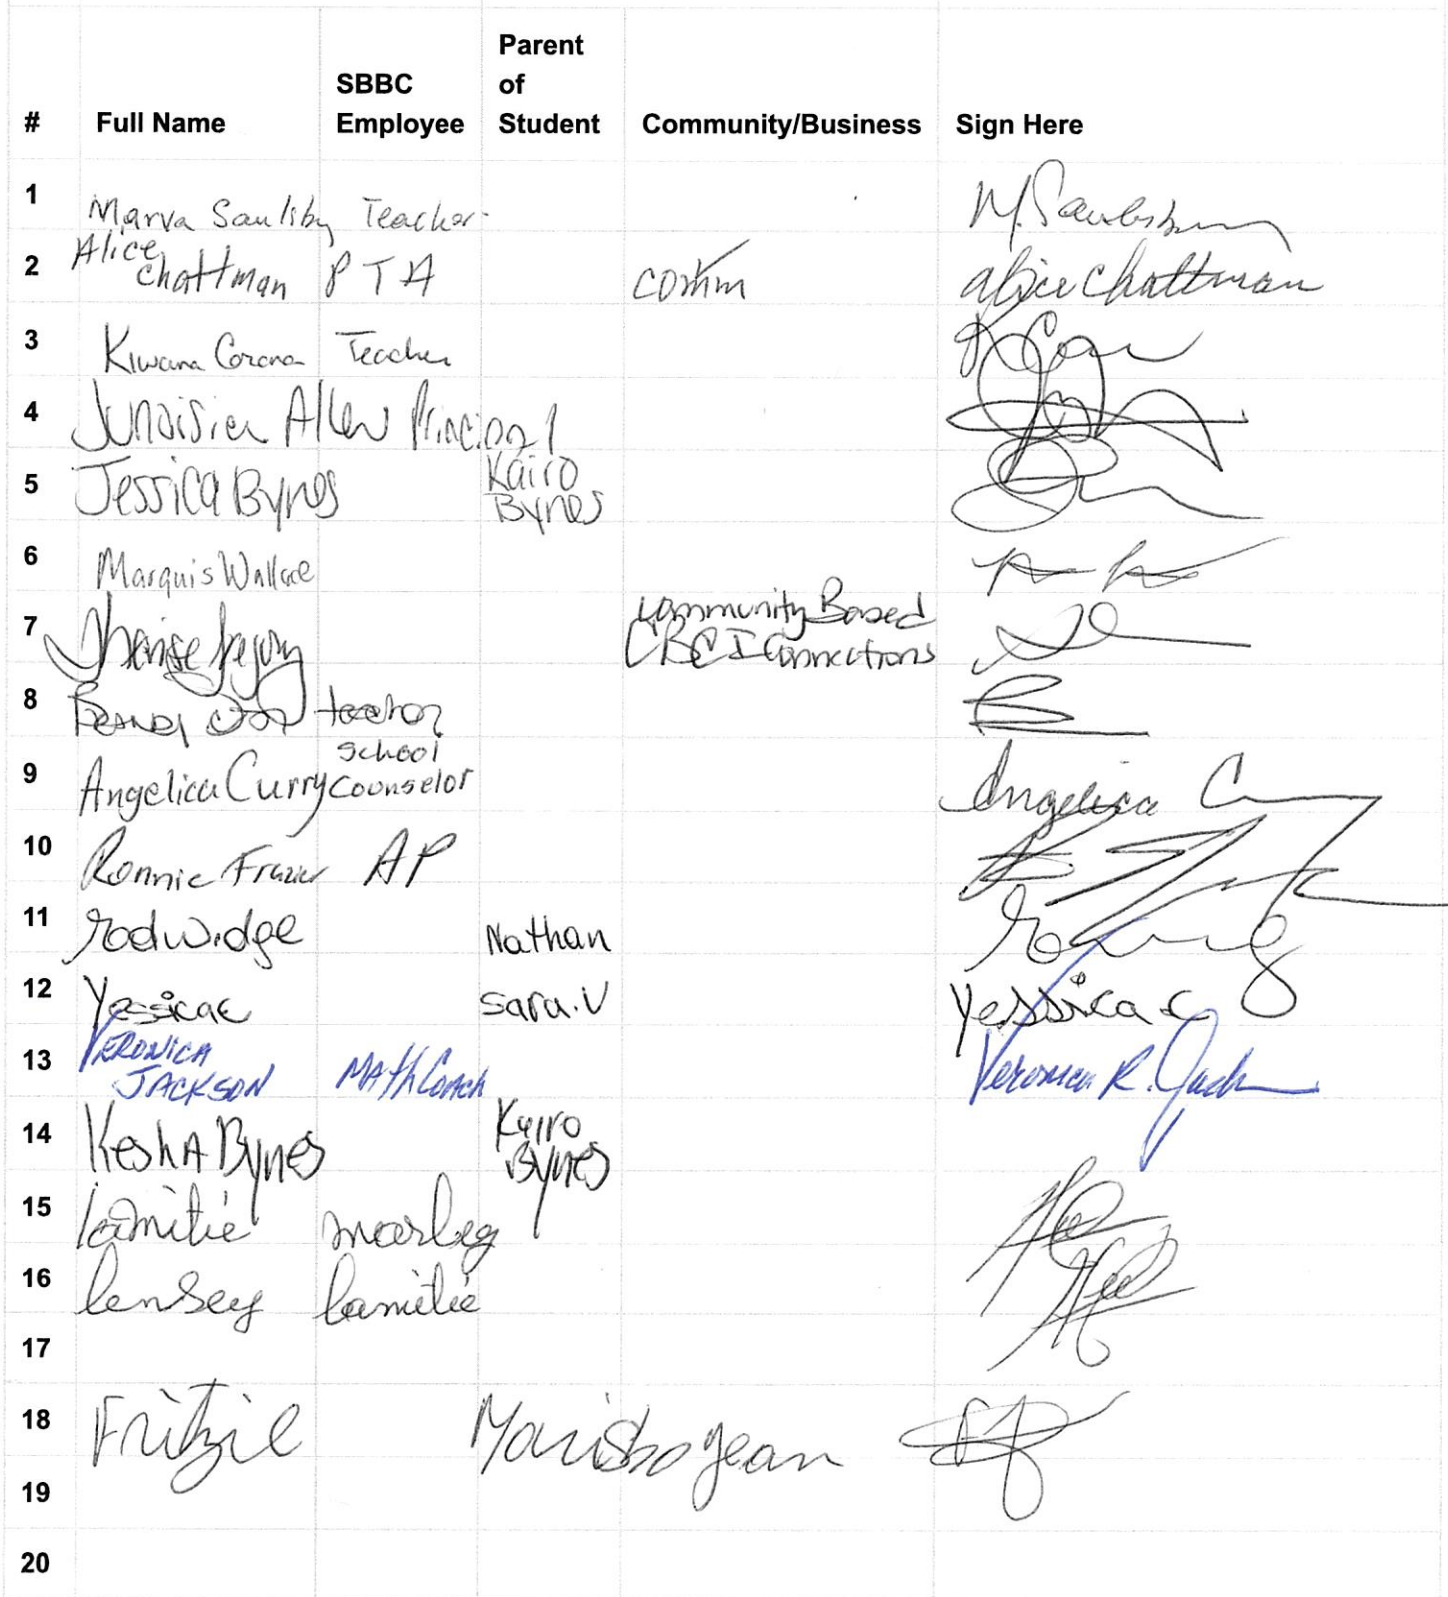 # Full Name SBBC Employee Parent of Student Community/Business Sign Here
1 Marva Teacher
2 Alice Chattman PTA comm alice Chattman
3 Kiwana Corona Teacher
4 Allen Principal
5 Jessica Bynes Kairo Bynes
6 Marquis Wallace
7 Community Based CBCI Connections
8 teacher
9 Angelica Curry School Counselor Angelica C
10 Ronnie Frazier AP
11 Nathan
12 Yessica C Sara.V Yessica C
13 VERONICA JACKSON MATH Coach Veronica R. Jack
14 KeshA Bynes Kairo Bynes
15 lamitie marley
16 lensey lamitie
17
18 Fritzil Jean
19
20